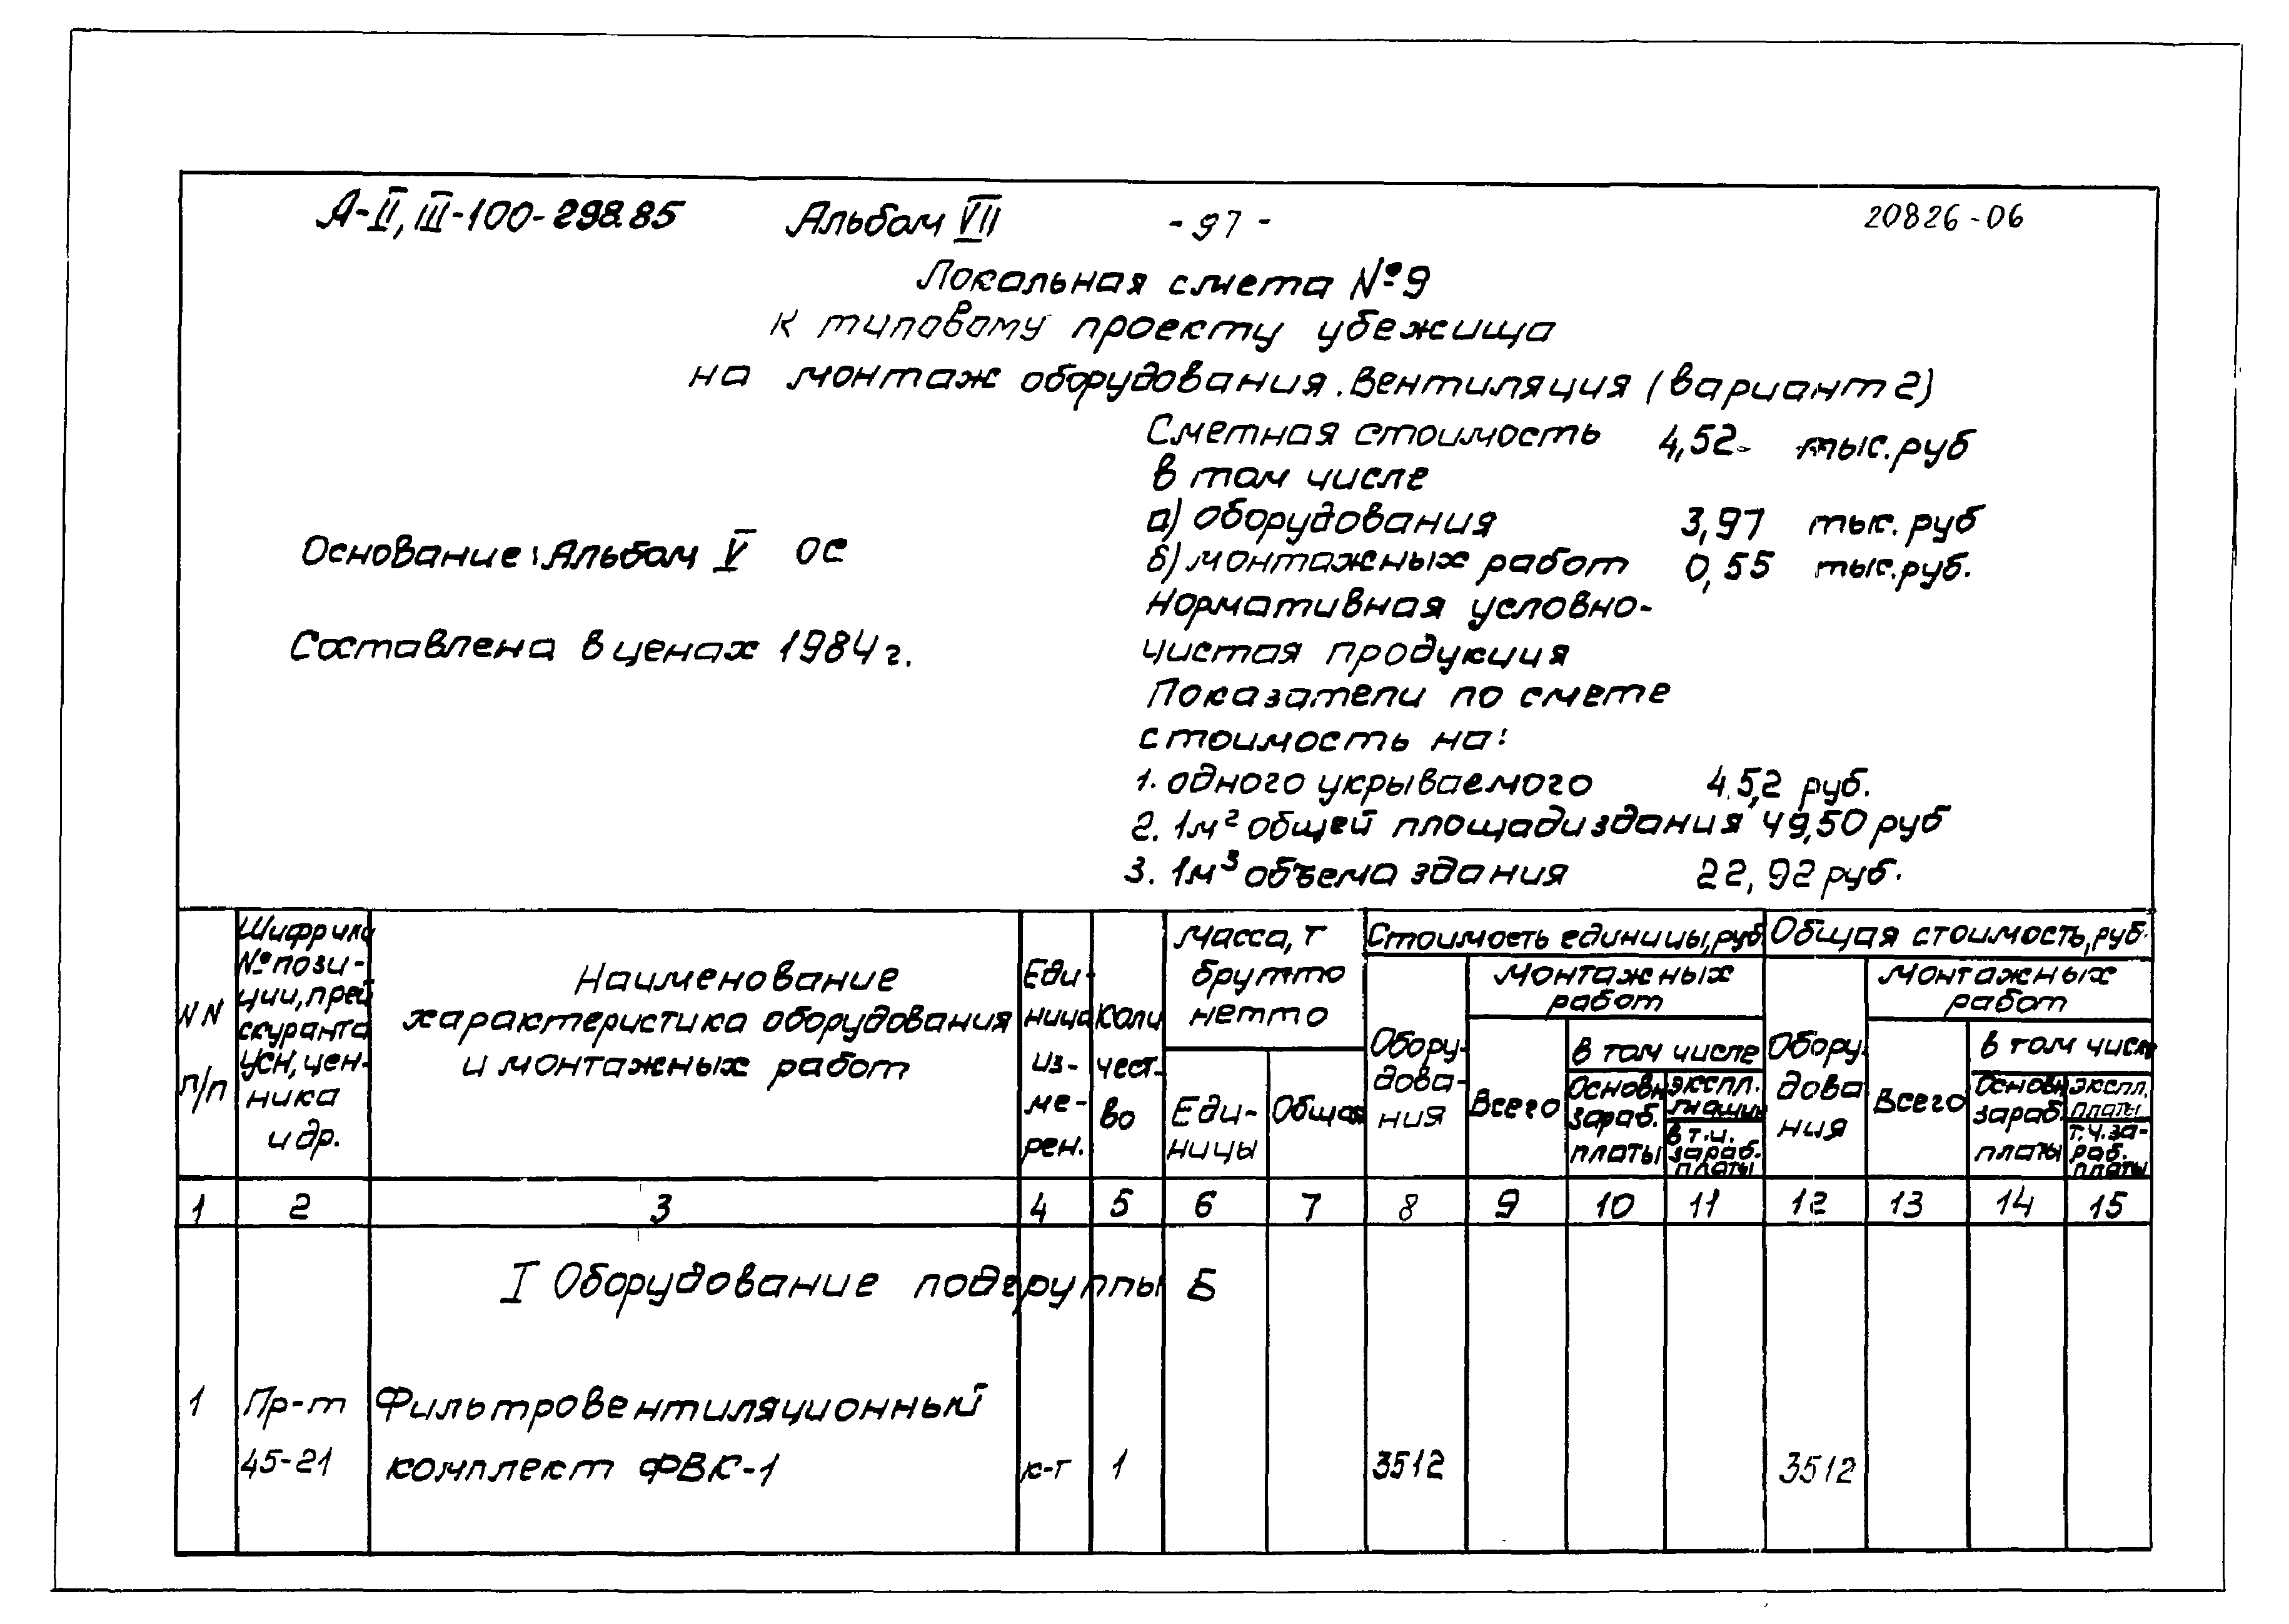 А-II, III-100-298.85 Альбом VII - 97 - 20826-06
Локальная смета №9
к типовому проекту убежища
на монтаж оборудования. Вентиляция (вариант 2)
Сметная стоимость 4,52 тыс.руб
в том числе
а) оборудования 3,97 тыс.руб
Основание: Альбом V ОС
б) монтажных работ 0,55 тыс.руб.
Нормативная условно-
Составлена в ценах 1984 г.
чистая продукция
Показатели по смете
стоимость на:
1. одного укрываемого 45,2 руб.
2. 1м² общей площади здания 49,50 руб
3. 1м³ объема здания 22,92 руб.
NN
п/п
Шифр и
№ пози-
ции, прей
скуранта
УСН, цен-
ника
и др.
Наименование
характеристика оборудования
и монтажных работ
Еди-
ница
из-
ме-
рен.
Коли
чест-
во
Масса, т
брутто
нетто
Еди-
ницы
Общая
Стоимость единицы, руб.
Обору-
дова-
ния
монтажных
работ
Всего
в том числе
Основн
зараб.
платы
экспл.
машин
в т.ч.
зараб.
платы
Общая стоимость, руб.
Обору-
дова
ния
монтажных
работ
Всего
в том числе
Основн
зараб.
платы
экспл.
платы
т.ч. за-
раб.
платы
1 2 3 4 5 6 7 8 9 10 11 12 13 14 15
I Оборудование подгруппы Б
1 Пр-т Фильтровентиляционный
45-21 комплект ФВК-1 к-т 1 3512 3512